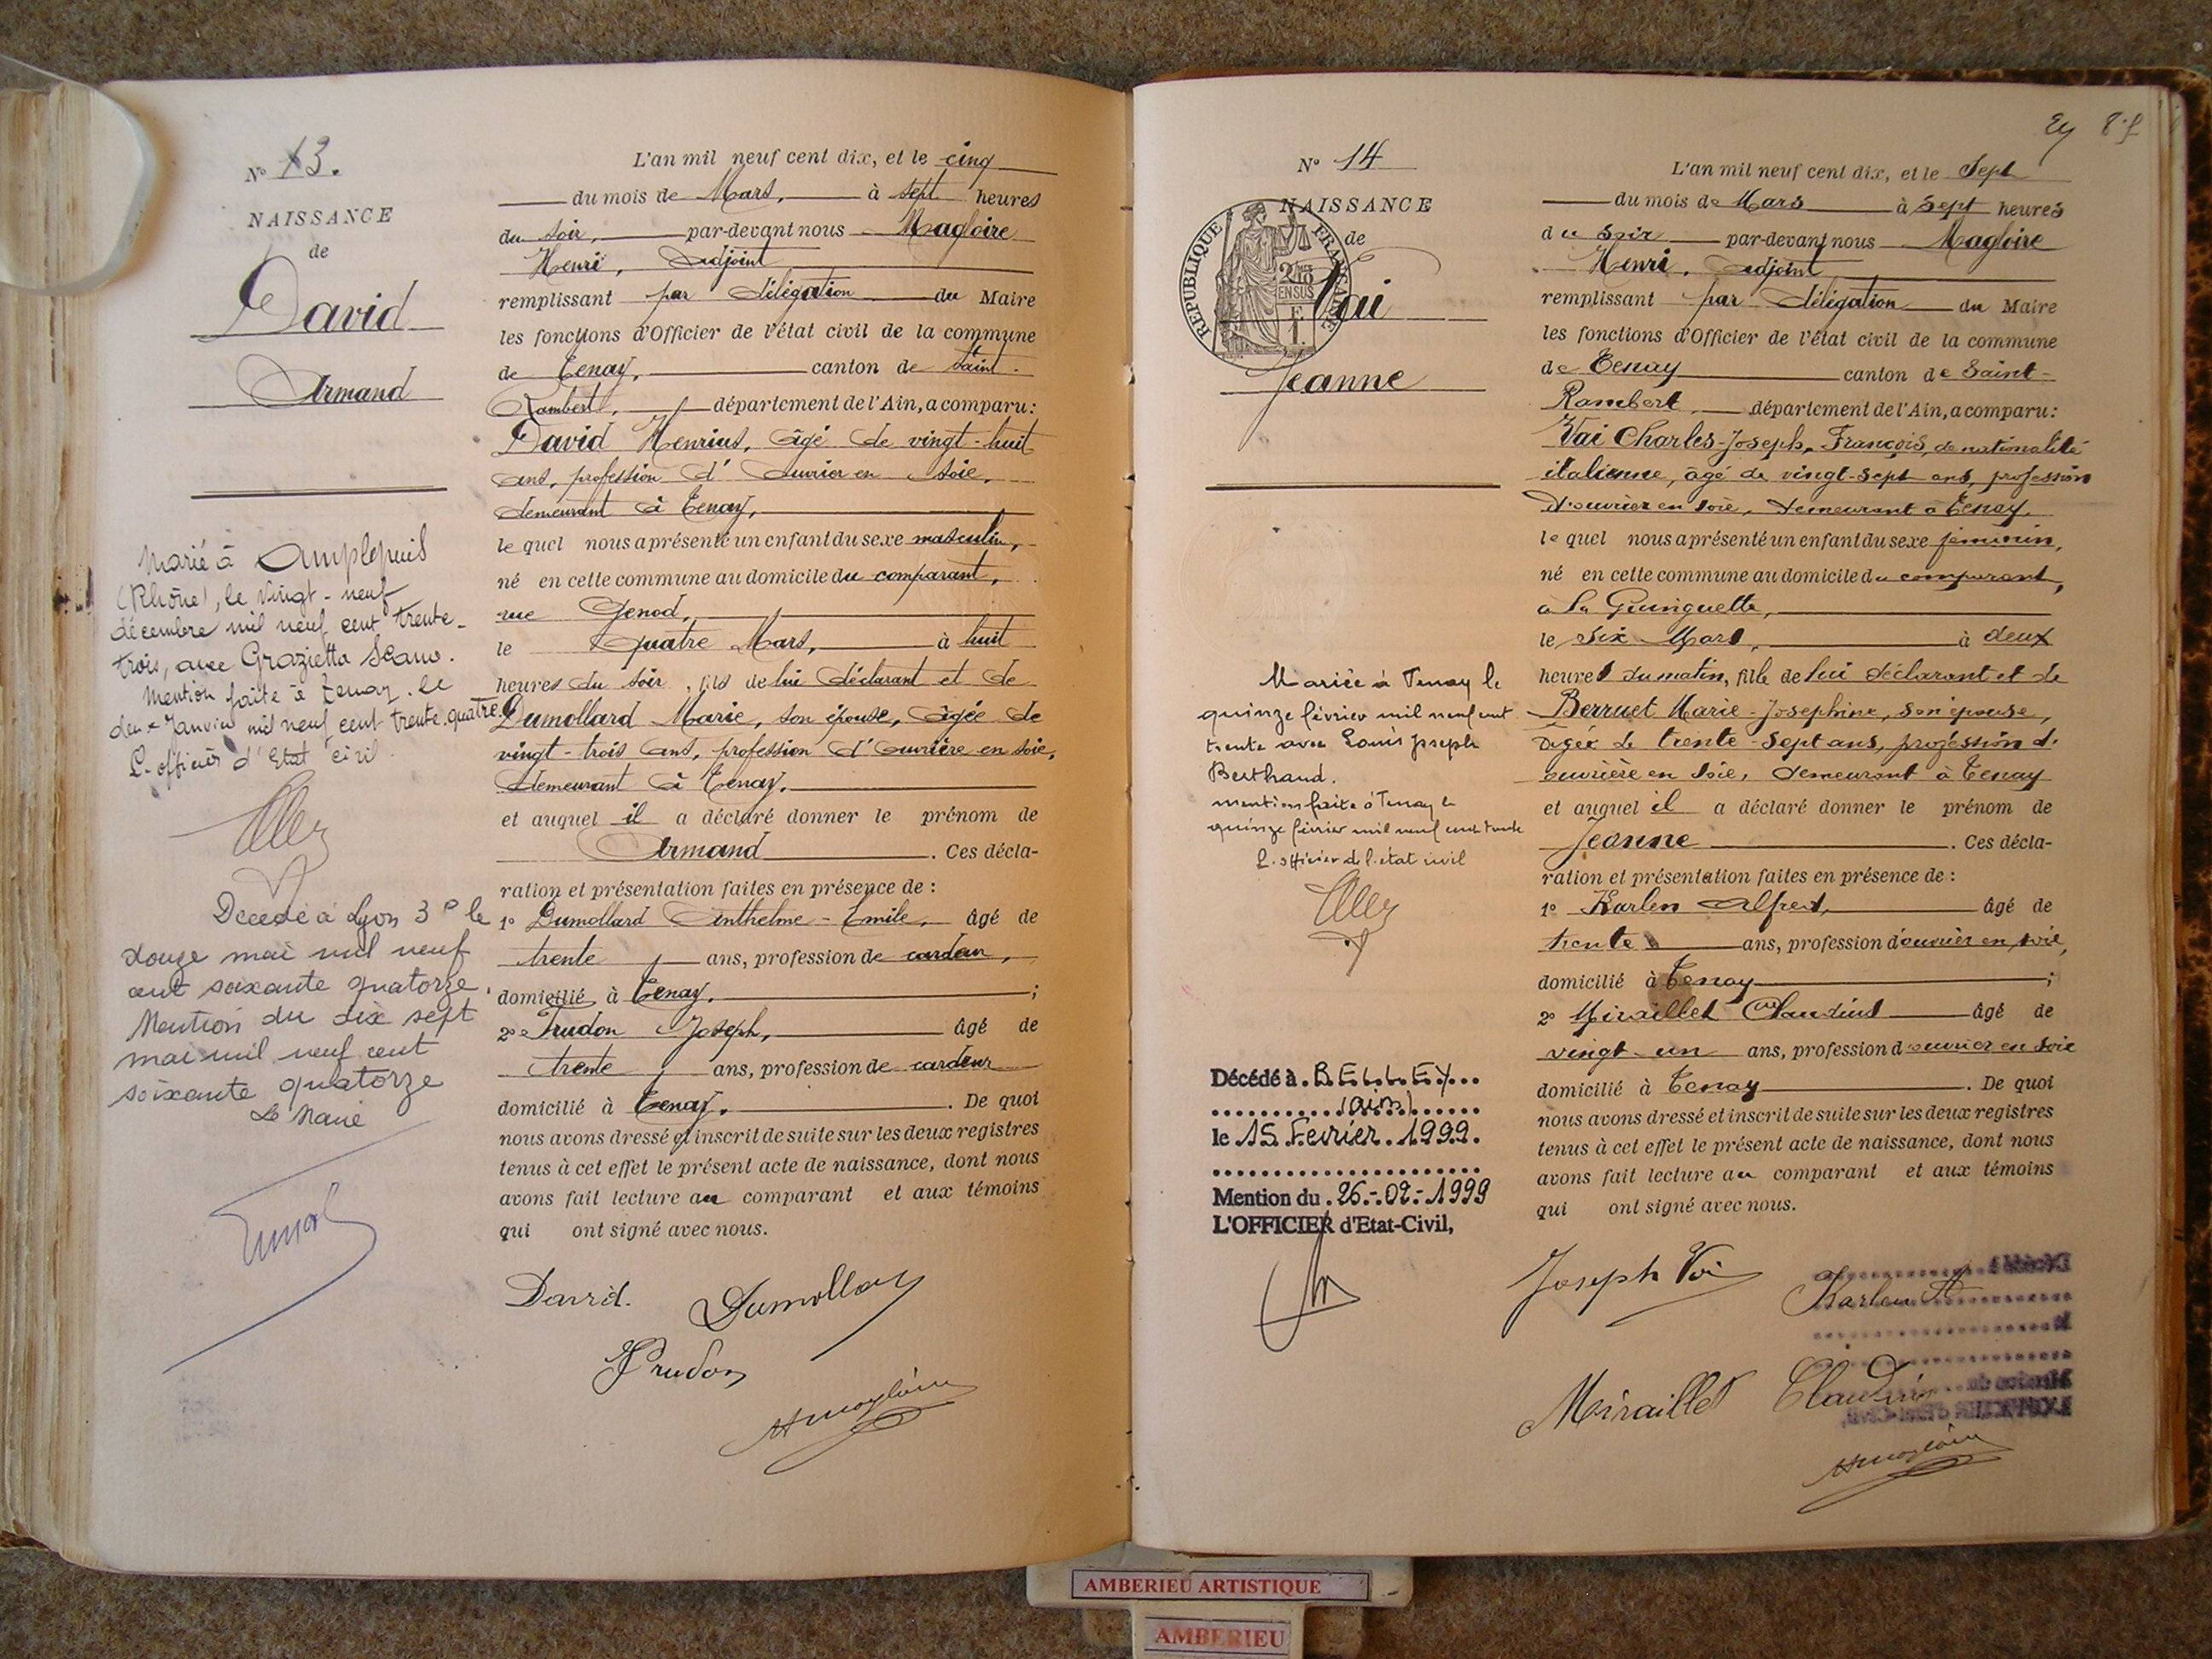 N° 13.
NAISSANCE
de
David
Armand
Marié à Amplepuis
(Rhône), le vingt-neuf
décembre mil neuf cent trente-
trois, avec Grazietta Scano.
Mention faite à Tenay. le
deux Janvier mil neuf cent trente quatre.
L'officier d'Etat civil
Décédé à Lyon 3e le
douze mai mil neuf
cent soixante quatorze.
Mention du dix sept
mai mil neuf cent
soixante quatorze
Le Maire
L'an mil neuf cent dix, et le cinq
du mois de Mars, à sept heures
du soir, par-devant nous Magloire
Henri, Adjoint
remplissant par délégation du Maire
les fonctions d'Officier de l'état civil de la commune
de Tenay, canton de Saint-
Rambert, département de l'Ain, a comparu:
David Henrius, âgé de vingt-huit
ans, profession d'ouvrier en soie,
demeurant à Tenay,
le quel nous a présenté un enfant du sexe masculin,
né en cette commune au domicile du comparant,
rue Genod,
le quatre Mars, à huit
heures du soir, fils de lui déclarant et de
Dumollard Marie, son épouse, âgée de
vingt-trois ans, profession d'ouvrière en soie,
demeurant à Tenay.
et auquel il a déclaré donner le prénom de
Armand. Ces décla-
ration et présentation faites en présence de :
1° Dumollard Anthelme-Emile, âgé de
trente ans, profession de cardeur,
domicilié à Tenay. ;
2° Prudon Joseph, âgé de
trente ans, profession de cardeur
domicilié à Tenay. De quoi
nous avons dressé et inscrit de suite sur les deux registres
tenus à cet effet le présent acte de naissance, dont nous
avons fait lecture au comparant et aux témoins
qui ont signé avec nous.
David. Dumollard
Prudon
HMagloire
N° 14
NAISSANCE
de
Vai
Jeanne
REPUBLIQUE FRANÇAISE
Mariée à Tenay le
quinze février mil neuf cent
trente avec Louis Joseph
Berthaud.
mention faite à Tenay le
quinze février mil neuf cent trente
L'officier de l'état civil
Décédé à . BELLEY...
(ain)
le 15 Fevrier. 1999.
Mention du . 26.-.02.-.1999
L'OFFICIER d'Etat-Civil,
L'an mil neuf cent dix, et le Sept
du mois de Mars à sept heures
du soir par-devant nous Magloire
Henri. Adjoint
remplissant par délégation du Maire
les fonctions d'Officier de l'état civil de la commune
de Tenay canton de Saint-
Rambert, département de l'Ain, a comparu:
Vai Charles-Joseph-François, de nationalité
italienne, âgé de vingt-sept ans, profession
d'ouvrier en soie, demeurant à Tenay,
le quel nous a présenté un enfant du sexe féminin,
né en cette commune au domicile du comparant,
à la Guinguette,
le six Mars, à deux
heures du matin, fille de lui déclarant et de
Berruet Marie-Josephine, son épouse,
âgée de trente-sept ans, profession d'
ouvrière en soie, demeurant à Tenay
et auquel il a déclaré donner le prénom de
Jeanne. Ces décla-
ration et présentation faites en présence de :
1° Karlen Alfred, âgé de
trente ans, profession d'ouvrier en soie,
domicilié à Tenay ;
2° Miraillet Claudius âgé de
vingt-un ans, profession d'ouvrier en soie
domicilié à Tenay. De quoi
nous avons dressé et inscrit de suite sur les deux registres
tenus à cet effet le présent acte de naissance, dont nous
avons fait lecture au comparant et aux témoins
qui ont signé avec nous.
Joseph Vai Karlen A
Miraillet Claudius
HMagloire
AMBERIEU ARTISTIQUE
AMBERIEU